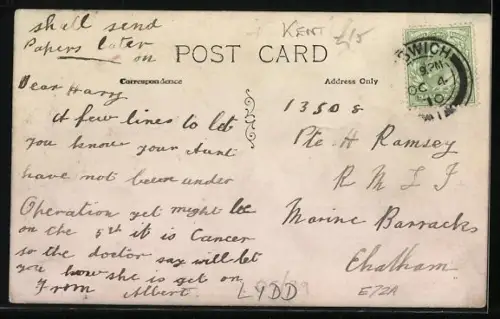 shall send
Papers later
on
KENT £15
POST CARD
Correspondence
Address Only
Dear Harry
A few lines to let
you know your Aunt
have not been under
Operation yet might be
on the 5th it is Cancer
so the doctor say will let
you how she is get on
From Albert
1350 8
Pte H Ramsey
R M L I
Marine Barracks
Chatham
LYDD
E72A
WICH
9 PM
OC 4
10